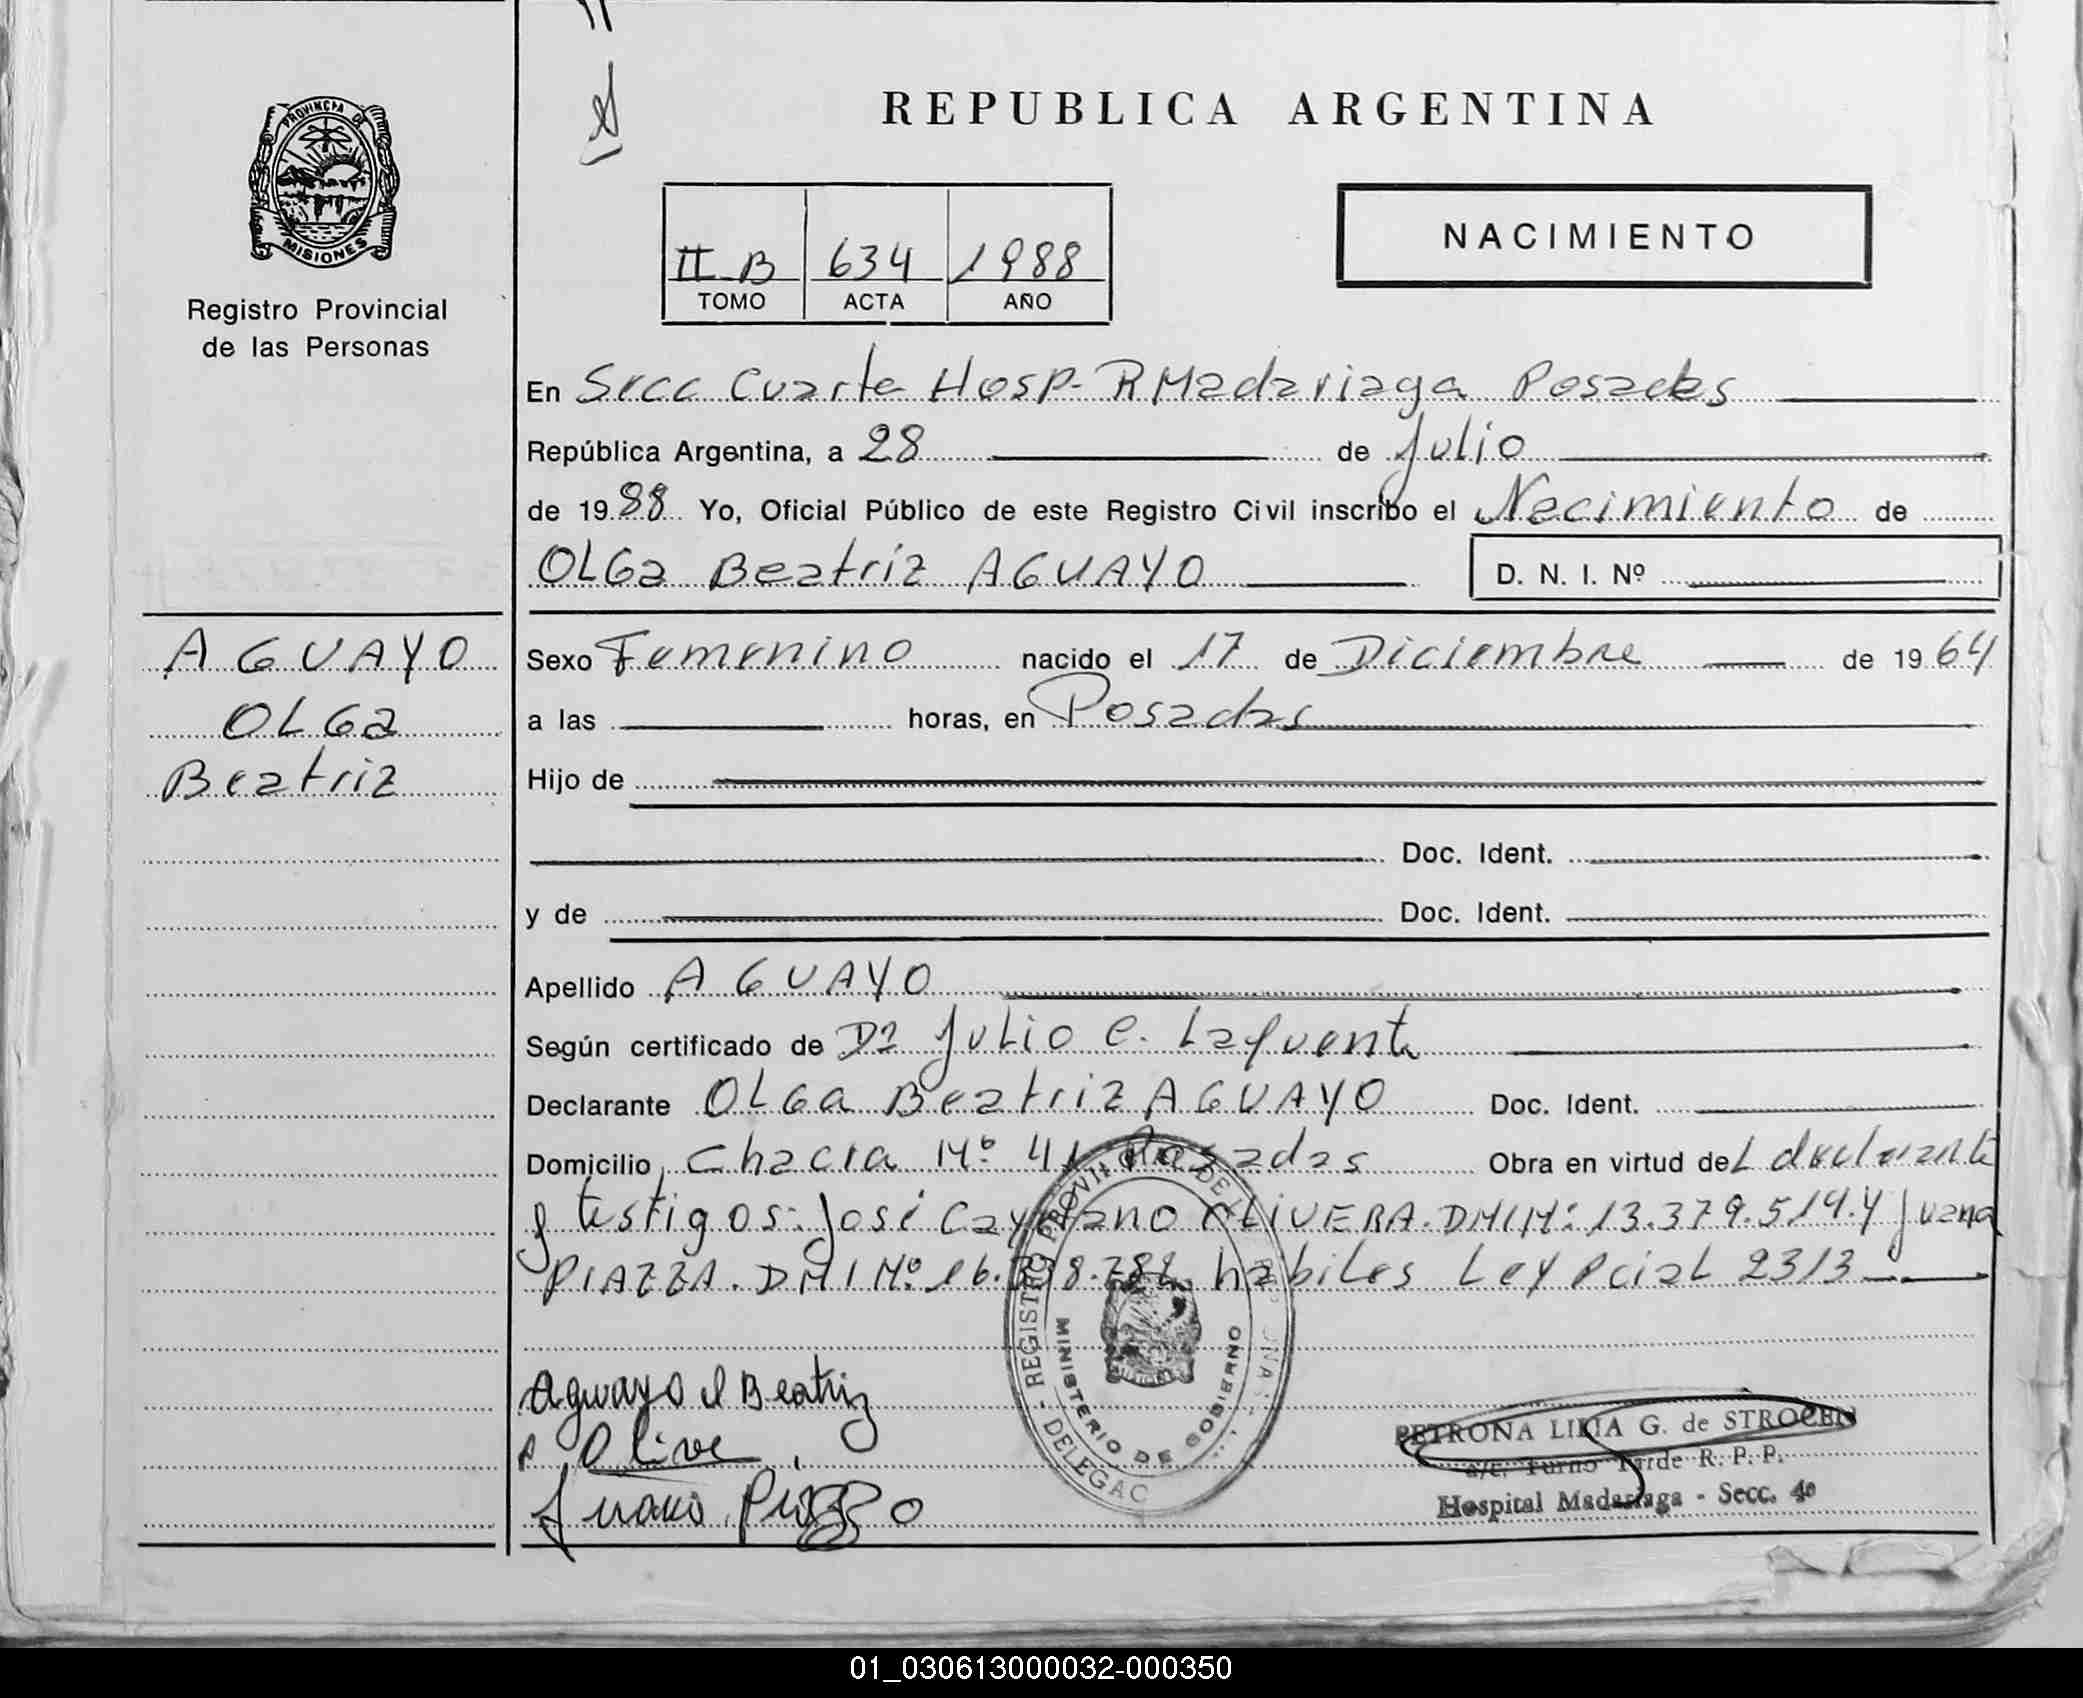 REPUBLICA ARGENTINA
PROVINCIA DE
MISIONES
Registro Provincial
de las Personas
II B 634 1988
TOMO ACTA AÑO
NACIMIENTO
En Secc Cuarta Hosp- R Madariaga Posadas
República Argentina, a 28 de Julio
de 19 88 Yo, Oficial Público de este Registro Civil inscribo el Nacimiento de
OLGa Beatriz AGUAYO D. N. I. Nº
AGUAYO
OLGa
Beatriz
Sexo Femenino nacido el 17 de Diciembre de 19 64
a las horas, en Posadas
Hijo de
Doc. Ident.
y de Doc. Ident.
Apellido AGUAYO
Según certificado de Dr Julio C. Lafuente
Declarante OLGa Beatriz AGUAYO Doc. Ident.
Domicilio Chacra Nº 41 Posadas Obra en virtud del declarante
y testigos: José Cayetano OLIVERA. DNI Nº 13.379.514. y Juana
PIAZZA. DNI Nº 16. habiles Ley Pcial 2313
REGISTRO PROVINCIAL DE
MINISTERIO DE GOBIERNO
DELEGAC
Aguayo O Beatriz
Olive
PETRONA LIDIA G. de STROCEN
a/c. Turno Tarde R. P. P.
Hospital Madariaga - Secc. 4º
01_030613000032-000350